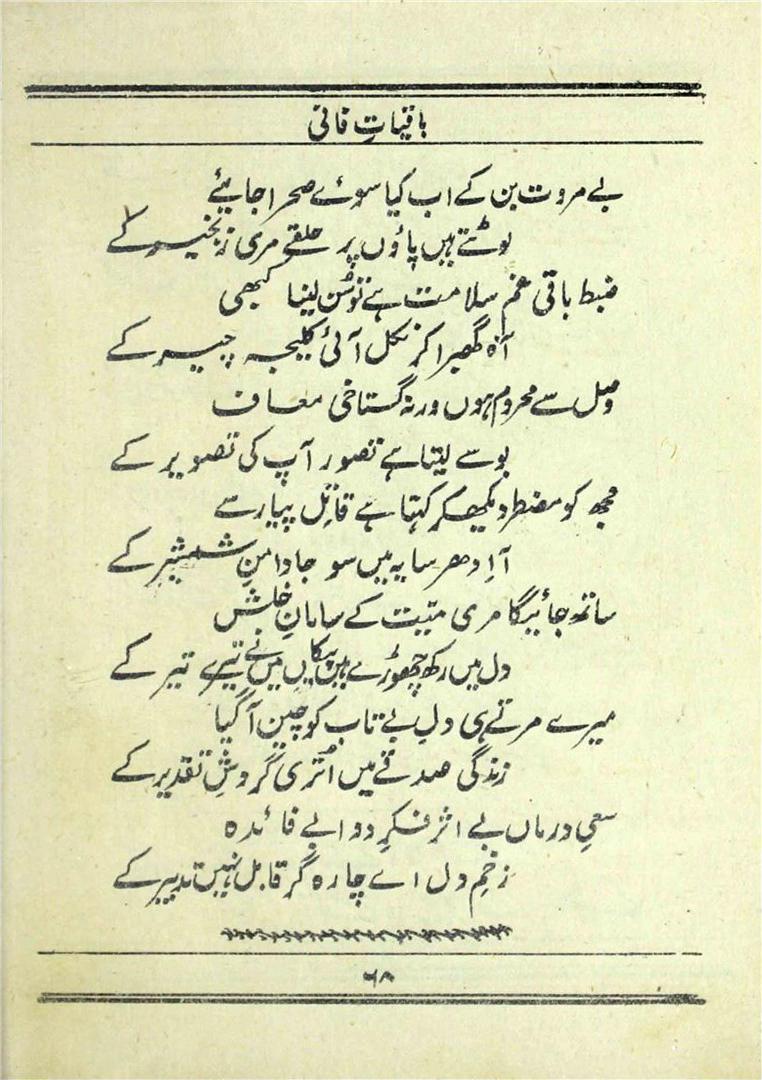 باقیاتِ فانی
بے مروت بن کے اب کیا سوئے صحرا جایئے
لوٹتے ہیں پاؤں پر حلقے مری زنجیر کے
ضبط باقی غم سلامت ہے تو سُن لینا کبھی
آہ گھبرا کر نکل آئی کلیجہ چیر کے
وصل سے محروم ہوں ورنہ گستاخی معاف
بوسے لیتا ہے تصور آپ کی تصویر کے
مجھ کو مضطر دیکھ کر کہتا ہے قاتل پیار سے
آ اِدھر سایہ میں سو جا دامنِ شمشیر کے
ساتھ جائیگا مری میّت کے سامانِ خلش
دل میں رکھ چھوڑے ہیں پیکاں میں نے تیرے تیر کے
میرے مرتے ہی دلِ بے تاب کو چین آ گیا
زندگی صدقے میں اُتری گردشِ تقدیر کے
سعیِ درماں بے اثر فکرِ دوا بے فائدہ
زخمِ دل اے چارہ گر قابل نہیں تدبیر کے
۶۸